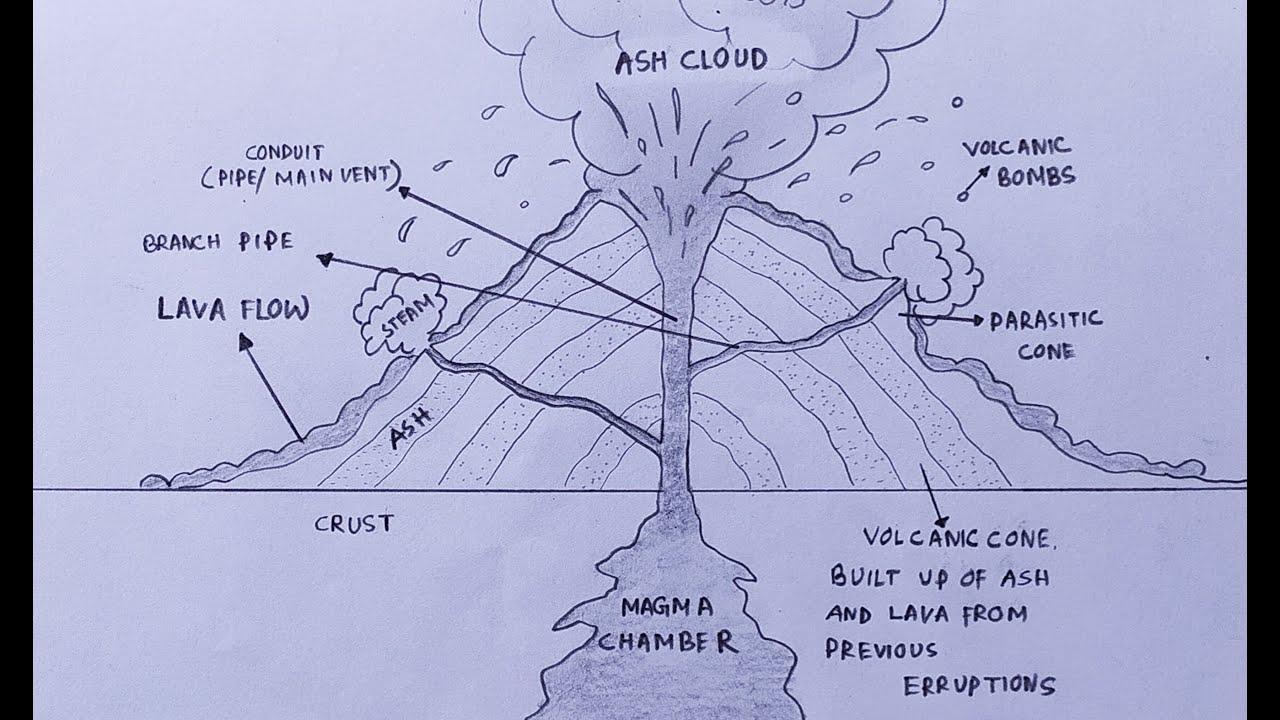 ASH CLOUD
CONDUIT
(PIPE/ MAIN VENT)
VOLCANIC
BOMBS
BRANCH PIPE
LAVA FLOW
STEAM
PARASITIC
CONE
ASH
CRUST
VOLCANIC CONE.
BUILT UP OF ASH
AND LAVA FROM
PREVIOUS
ERRUPTIONS
MAGMA
CHAMBER